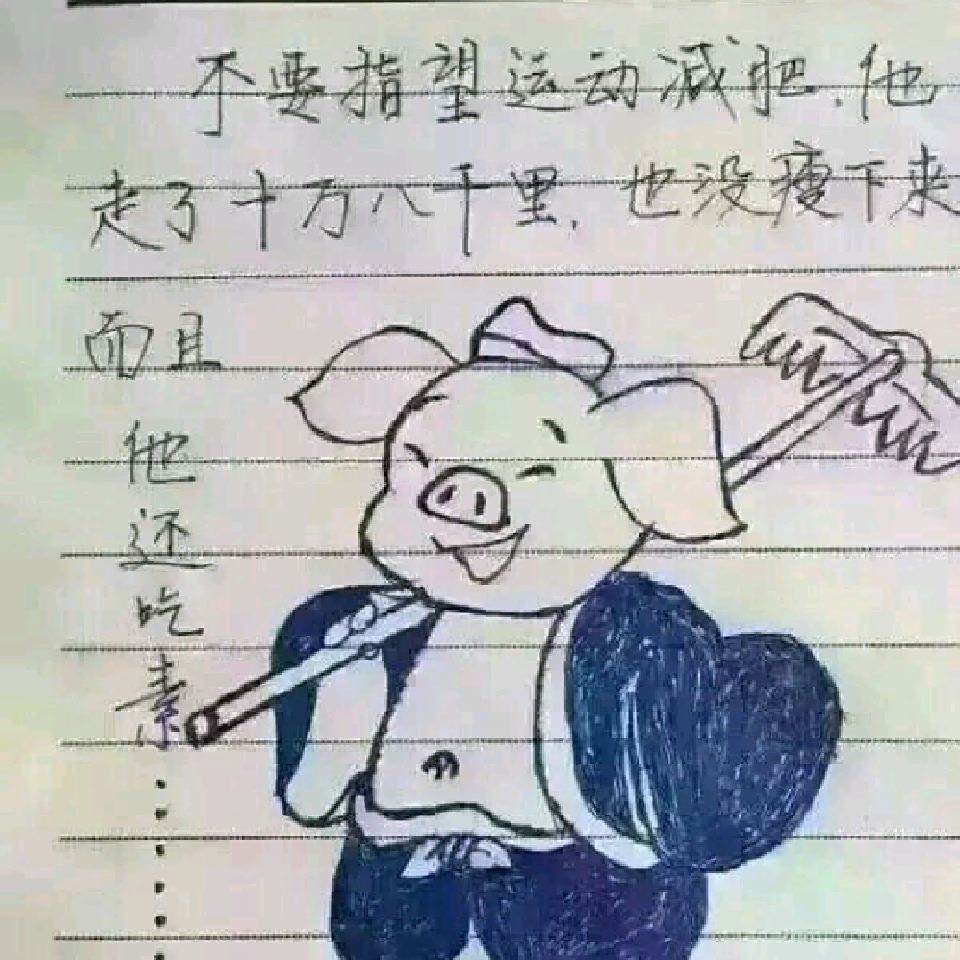 不要指望运动减肥,他
走了十万八千里,也没瘦下来
而且
他还吃素......